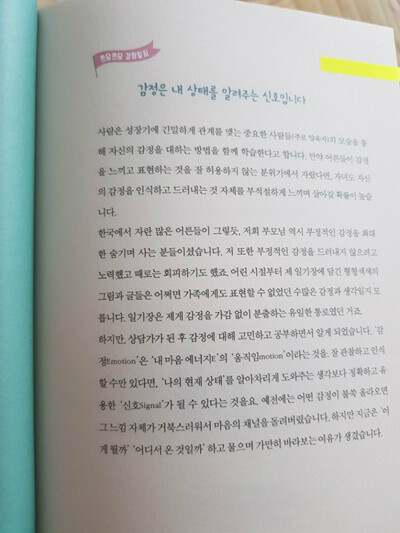 쓰담쓰담 감정일지
감정은 내 상태를 알려주는 신호입니다
사람은 성장기에 긴밀하게 관계를 맺는 중요한 사람들(주로 양육자)의 모습을 통
해 자신의 감정을 대하는 방법을 함께 학습한다고 합니다. 만약 어른들이 감정
을 느끼고 표현하는 것을 잘 허용하지 않는 분위기에서 자랐다면, 자녀도 자신
의 감정을 인식하고 드러내는 것 자체를 부적절하게 느끼며 살아갈 확률이 높습
니다.
한국에서 자란 많은 어른들이 그렇듯, 저희 부모님 역시 부정적인 감정을 최대
한 숨기며 사는 분들이셨습니다. 저 또한 부정적인 감정을 드러내지 않으려고
노력했고 때로는 회피하기도 했죠. 어린 시절부터 제 일기장에 담긴 형형색색의
그림과 글들은 어쩌면 가족에게도 표현할 수 없었던 수많은 감정과 생각일지 모
릅니다. 일기장은 제게 감정을 가감 없이 분출하는 유일한 통로였던 거죠.
하지만, 상담가가 된 후 감정에 대해 고민하고 공부하면서 알게 되었습니다. '감
정Emotion'은 '내 마음 에너지E'의 '움직임motion'이라는 것을. 잘 관찰하고 인식
할 수만 있다면, '나의 현재 상태'를 알아차리게 도와주는 생각보다 정확하고 유
용한 '신호Signal'가 될 수 있다는 것을요. 예전에는 어떤 감정이 불쑥 올라오면
그 느낌 자체가 거북스러워서 마음의 채널을 돌려버렸습니다. 하지만 지금은 '이
게 뭘까' '어디서 온 것일까' 하고 물으며 가만히 바라보는 여유가 생겼습니다.